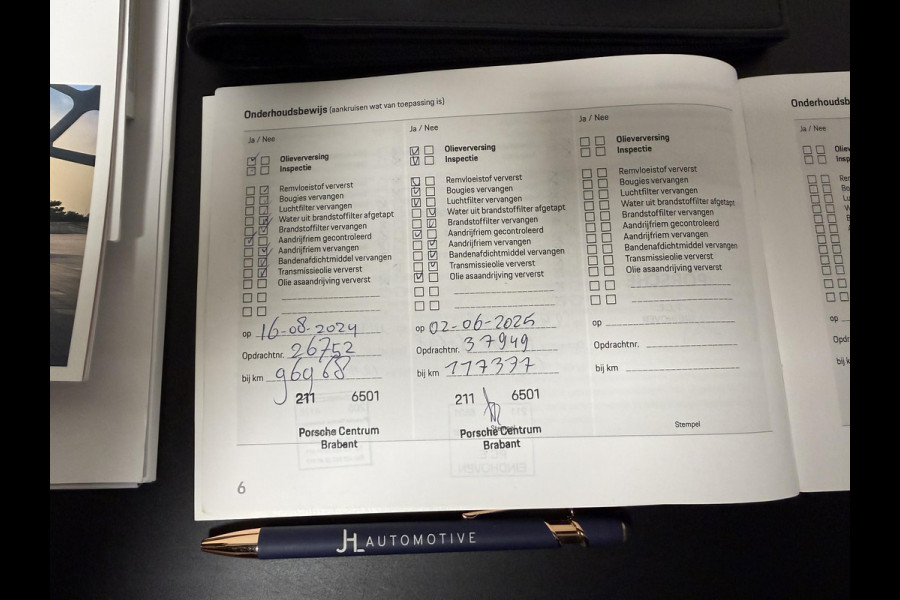 Onderhoudsbewijs (aankruisen wat van toepassing is)
Ja / Nee
Olieverversing
Inspectie
Remvloeistof ververst
Bougies vervangen
Luchtfilter vervangen
Water uit brandstoffilter afgetapt
Brandstoffilter vervangen
Aandrijfriem gecontroleerd
Aandrijfriem vervangen
Bandenafdichtmiddel vervangen
Transmissieolie ververst
Olie asaandrijving ververst
op 16-08-2024
Opdrachtnr. 26752
bij km 96968
211 6501
Porsche Centrum
Brabant
Ja / Nee
Olieverversing
Inspectie
Remvloeistof ververst
Bougies vervangen
Luchtfilter vervangen
Water uit brandstoffilter afgetapt
Brandstoffilter vervangen
Aandrijfriem gecontroleerd
Aandrijfriem vervangen
Bandenafdichtmiddel vervangen
Transmissieolie ververst
Olie asaandrijving ververst
op 02-06-2025
Opdrachtnr. 37949
bij km 117377
211 6501
Stempel
Porsche Centrum
Brabant
Ja / Nee
Olieverversing
Inspectie
Remvloeistof ververst
Bougies vervangen
Luchtfilter vervangen
Water uit brandstoffilter afgetapt
Brandstoffilter vervangen
Aandrijfriem gecontroleerd
Aandrijfriem vervangen
Bandenafdichtmiddel vervangen
Transmissieolie ververst
Olie asaandrijving ververst
op
Opdrachtnr.
bij km
Stempel
6
Onderhoudsb
Ja / Nee
Oliev
Insp
op
bij k
JHL AUTOMOTIVE